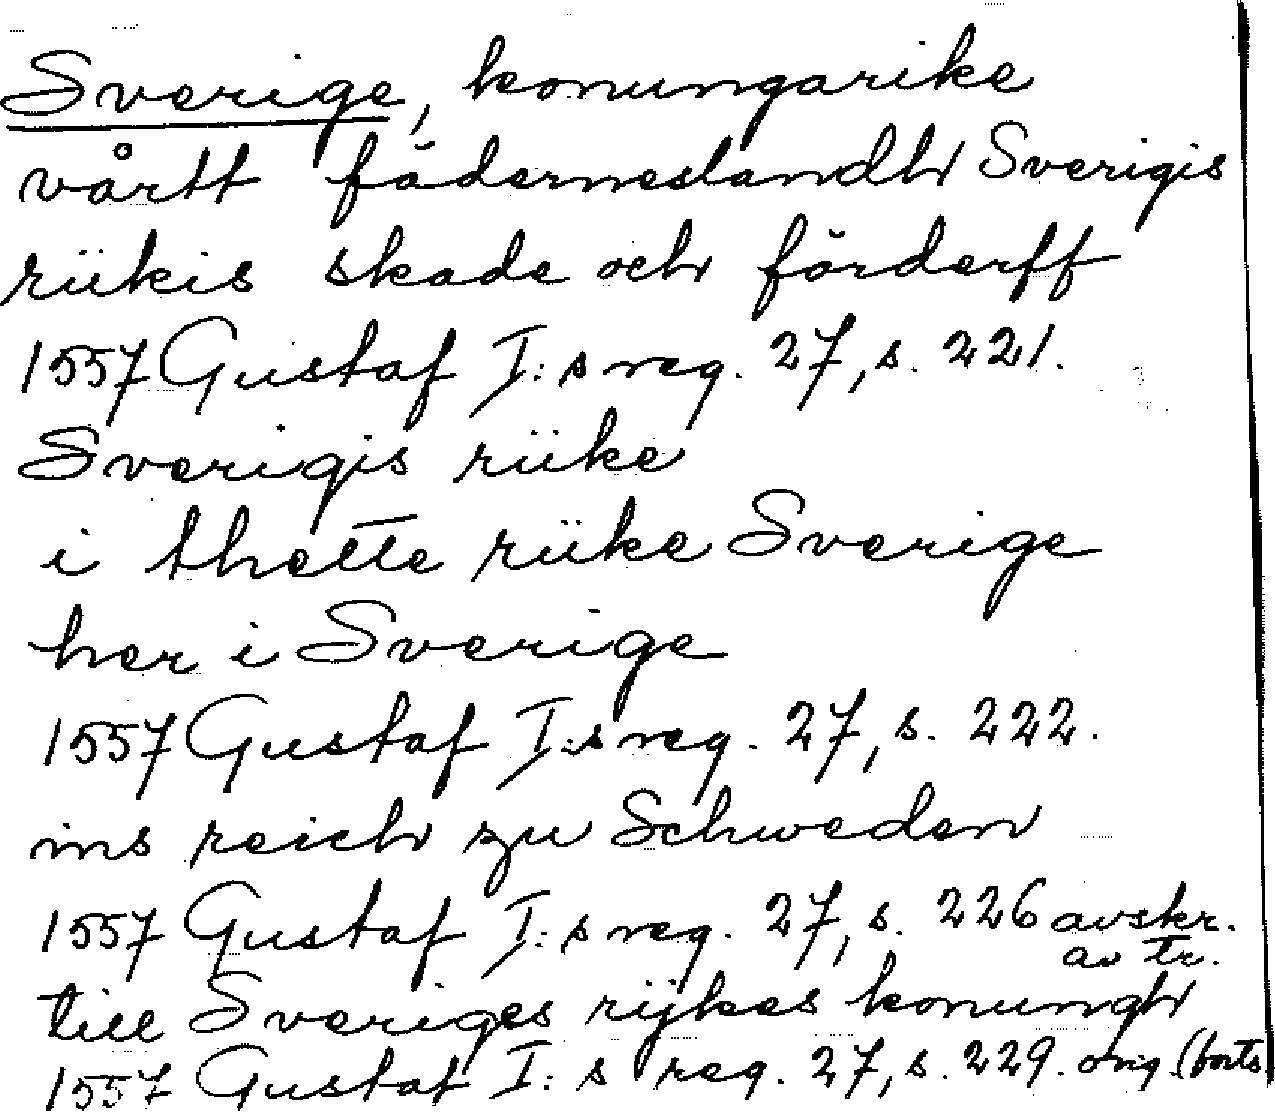 Sverige, konungarike
vårtt fäderneslandh Sverigis
riikis skade och förderff
1557 Gustaf I:s reg. 27, s. 221.
Sverigis rüke
i thette rüke Sverige
her i Sverige
1557 Gustaf I:s reg. 27, s. 222.
ins reich zu Schweden
1557 Gustaf I:s reg. 27, s. 226 avskr.
av tr.
till Sveriges rijkes konungh
1557 Gustaf I:s reg. 27, s. 229. orig. (forts